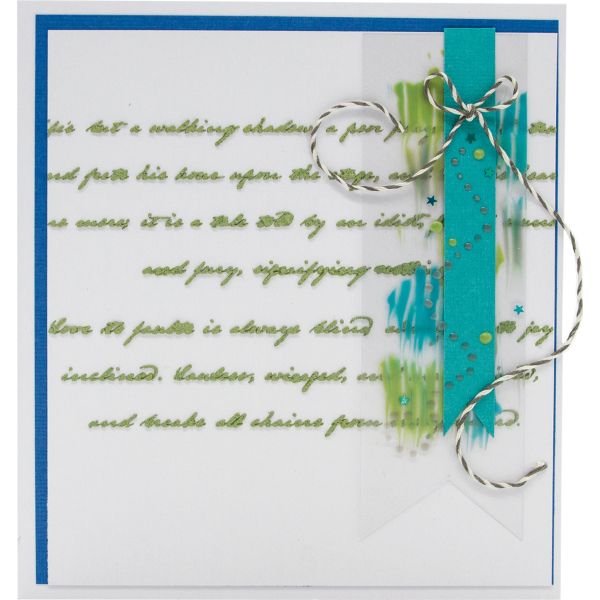 but a walking shadow, a poor
and frets his hour upon the stage, and
more; it is a tale told by an idiot,
and fury, signifying
Love to faults is always blind always joy
inclined. Lawless, winged, and
and breaks all chains from